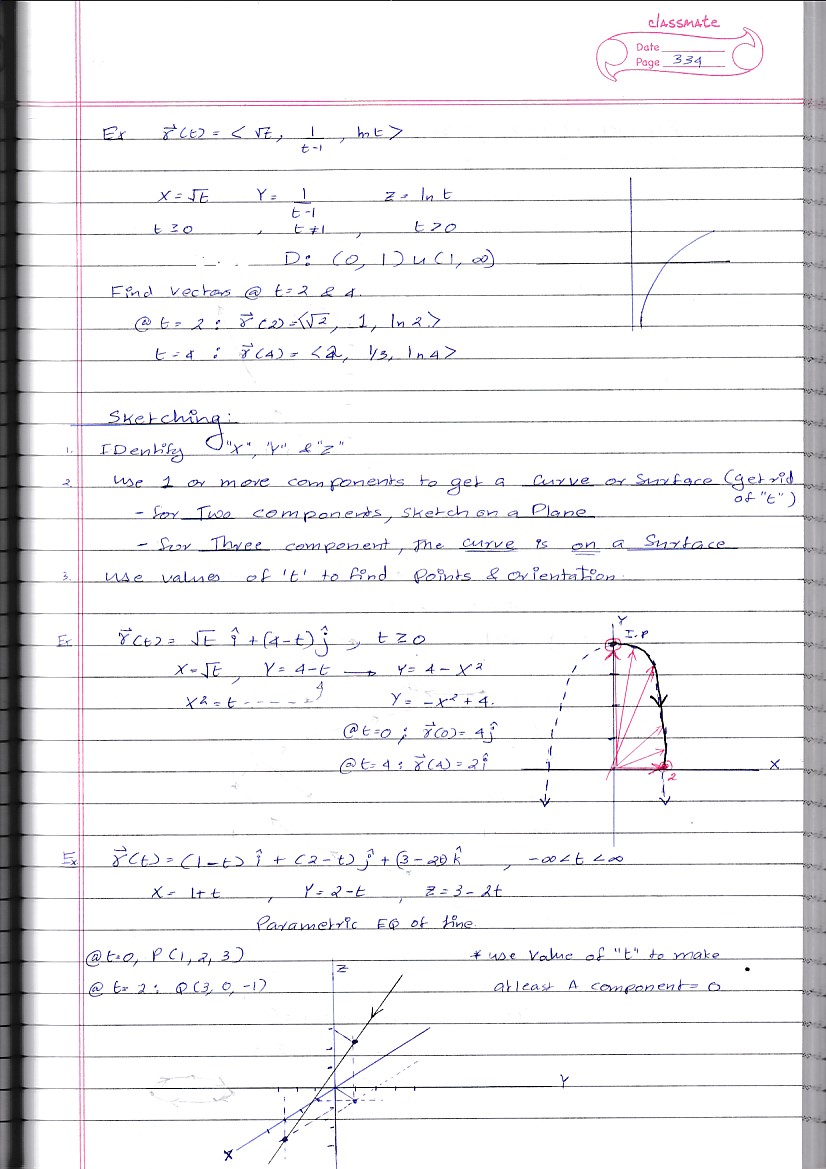 classmate
Date
Page 334
Ex r⃗(t) = < √t, 1/(t-1), lnt >
X = √t Y = 1/(t-1) Z = ln t
t ≥ 0 , t ≠ 1 , t > 0
D: (0, 1) U (1, ∞)
Find vectors @ t = 2 & 4.
@ t = 2 : r⃗(2) = <√2, 1, ln 2>
t = 4 : r⃗(4) = <2, 1/3, ln 4>
Sketching:
1. IDentify "X", "Y" & "Z"
2. Use 1 or more components to get a Curve or Surface (get rid of "t")
- for Two components, sketch on a Plane
- for Three component, the curve is on a Surface
3. Use values of 't' to find Points & Orientation.
Ex r⃗(t) = √t î + (4-t) ĵ , t ≥ 0
X = √t , Y = 4-t → Y = 4 - X²
X² = t Y = -X² + 4.
@t=0 ; r⃗(0) = 4ĵ
@t=4 : r⃗(4) = 2î
Y
I.P
X
2
Ex r⃗(t) = (1-t) î + (2-t) ĵ + (3-2t) k̂ , -∞ < t < ∞
X = 1+t , Y = 2-t , Z = 3-2t
Parametric EQ of line.
@t=0, P(1, 2, 3)
@ t= 2: Q(3, 0, -1)
* use Value of "t" to make
atleast A component = 0
Z
Y
X